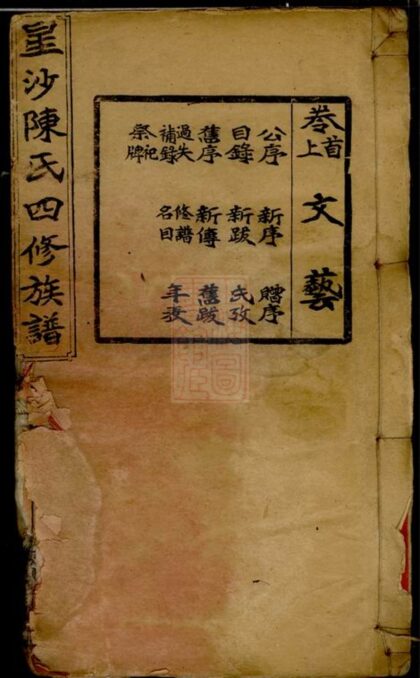 星沙陳氏四修族譜
卷首上 文藝
公序 新序 贈序
目錄 新跋 氏攷
舊序 新傳 舊跋
過失補錄 修譜名目 年次
祭祀牌